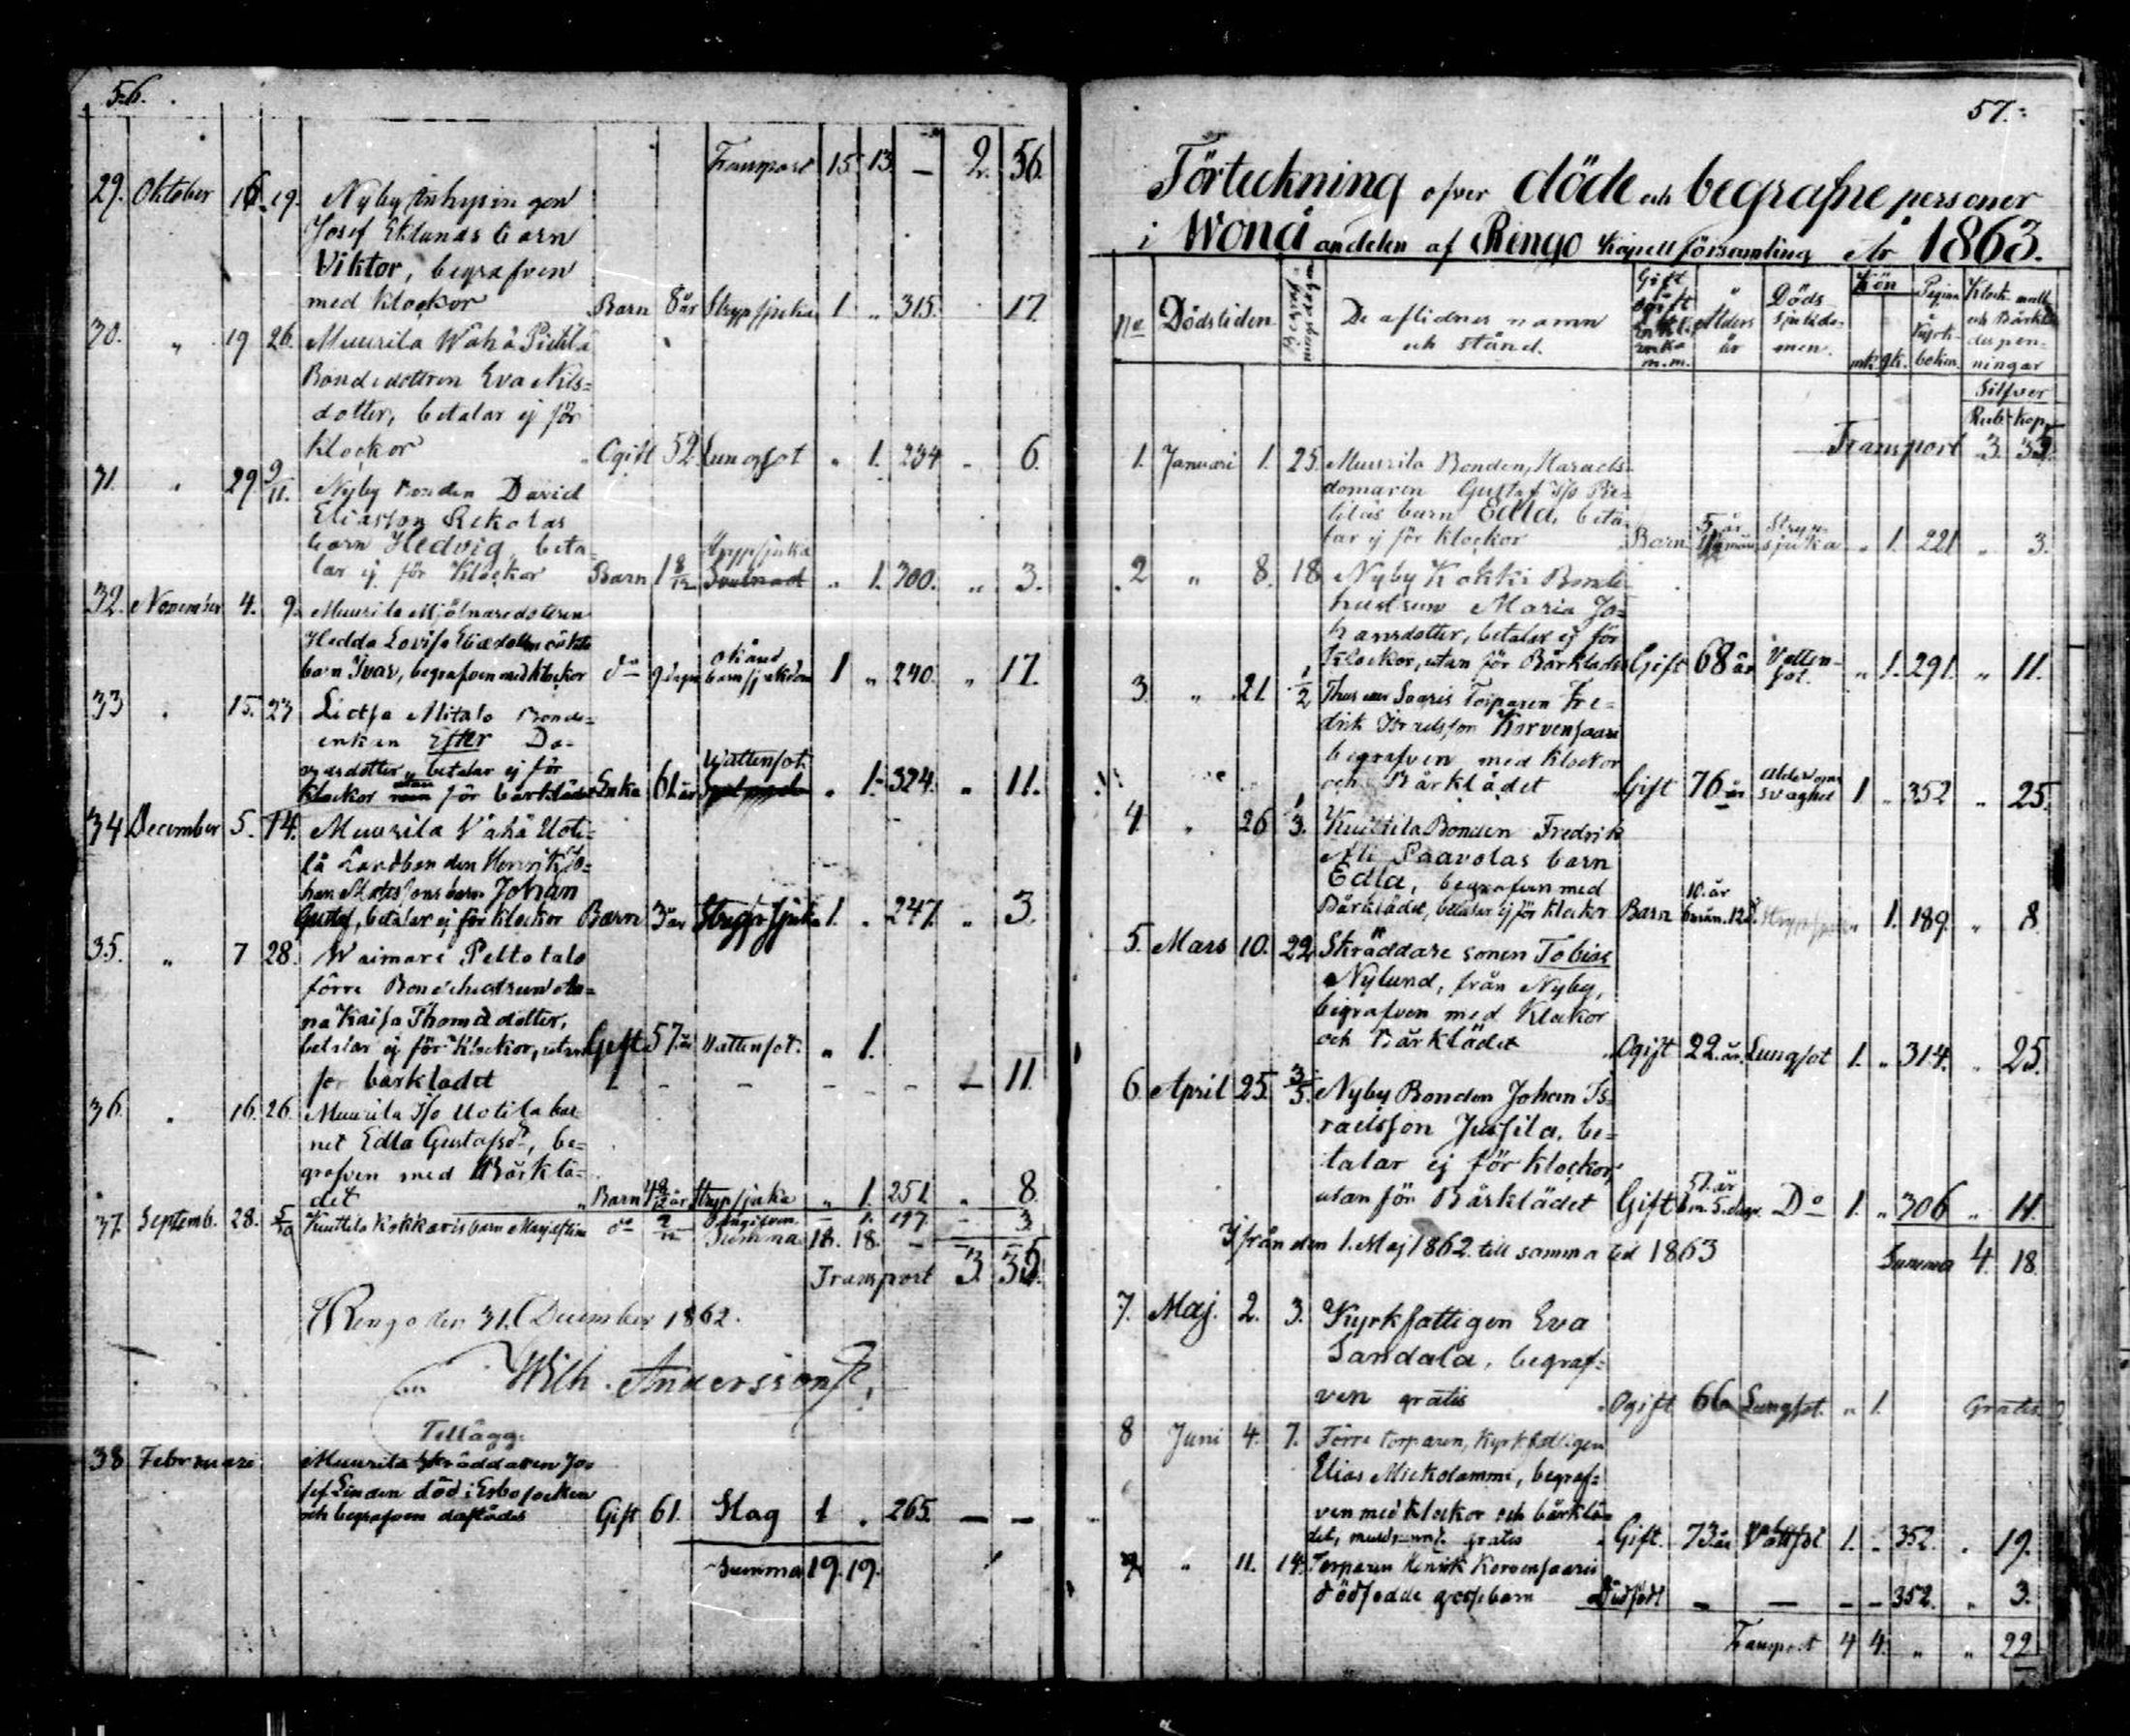 56.
Transport 15 13 — 2. 56.
29. Oktober 16. 19. Nyby Inhysingen
Josef Eklunds barn
Viktor, begrafven
med klockor Barn 8 år Strypsjuka 1 „ 315. 17.
30. „ 19 26. Muurila Wähä Pietilä
Bondedottren Eva Nils=
dotter, betalar ej för
klockor Ogift 52 Lungsot „ 1. 234 „ 6.
31. „ 29 9/11. Nyby Bonden David
Eliasson Rekolas
barn Hedvig, beta=
lar ej för klockor Barn 1 8/12 Strypsjuka „ 1. 300. „ 3.
32. November 4. 9. Muurila Mjölnaredottren
Hedda Lovisa oäkta
barn Ivar, begrafven med klockor do 9 dagar okänd barnsjukdom 1 „ 240. „ 17.
33 „ 15. 23 Mitalo Bonde=
enkan Ester Da=
vidsdotter, betalar ej för
klockor utan för bårklädet Enka 61 år Wattensot. „ 1. 324. „ 11.
34 December 5. 14. Muurila Vähä Uoti=
lä Landbonden Henrik Jo=
han Matssons barn Johan
Gustaf, betalar ej för klockor Barn 3 år Strypsjuka 1. „ 247. „ 3.
35. „ 7 28. Waimari Peltotalo
förre Bondehustrun An=
na Kaisa Thomadotter,
betalar ej för klockor, utan Gift 57. år Vattensot. „ 1.
för bårklädet – – – – – — 11.
36. „ 16. 26. Muurila I/o Uotila bar
net Edla Gustafsdr, be=
grafven med Bårklä=
det Barn 4 8/12 år Strypsjuka „ 1. 251 „ 8.
37. Septemb. 28. 5/10 Kuuttila Kokkaris barn do 2/12 — 1. 197. – 3
Summa 18. 18. –
Transport 3. 35.
Rengo den 31. December 1862.
Wilh. Andersson
Tillägg.
38 Februari Muurila Skräddaren Jo=
sef Linden död i Esbo socken
och begrafven därstädes Gift 61. Slag 1 „ 265. — —
Summa 19. 19.
57.
Förteckning öfver döde och begrafne personer
i Wonå andelen af Rengo Kapellförsamling År 1863.
No Dödstiden De aflidnes namn
och stånd. Gift ogift enkl. enka m.m. Ålders år Döds sjukdo= men. Kön mk. qk. Pagina i Kyrk- boken. Klock- malls och Bårklä= des pen= ningar
Silfver
Rub. Kop.
Transport 3. 35.
1. Januari 1. 25. Muurila Bonden, Härads=
domaren Gustaf I/o Pie=
tiläs barn Edla, beta=
lar ej för klockor Barn 5 år Stryp= sjuka „ 1. 221 „ 3.
2 „ 8. 18 Nyby Kokki Bonde
hustrun Maria Jo=
hansdotter, betalar ej för
klockor, utan för Bårklädet Gift 68 år Vatten- sot. „ 1. 291. „ 11.
3 „ 21. 1/2 Torparen Fre=
drik Israelsson Korvensaari
begrafven med klockor
och Bårklädet Gift 76 år ålderdoms svaghet 1. „ 352 „ 25.
4 „ 26 1/3. Kuuttila Bonden Fredrik
Ali Paavolas barn
Edla, begrafven med
Bårklädet, betalar ej för klockor Barn 10. år 6 mån. 12 d. Strypsjuka 1. 189. „ 8
5. Mars 10. 22 Skräddare sonen Tobias
Nylund, från Nyby,
begrafven med Klockor
och Bårklädet Ogift 22. år. Lungsot 1. „ 314. „ 25.
6 April 25. 3/5. Nyby Bonden Johan Is=
raelsson Jussila, be=
talar ej för klockor,
utan för Bårklädet Gift 51. år 6 m. 5. dagar Do 1. „ 306 „ 11.
Ifrån den 1. Maj 1862 till samma tid 1863 Summa 4. 18.
7. Maj. 2. 3. Kyrkfattigen Eva
Sandala, begraf=
ven gratis Ogift 66 Lungsot. „ 1. Gratis.
8 Juni 4. 7. Förre torparen, Kyrkfattigen
Elias Mickolammi, begraf=
ven med klockor och bårklä=
det, gratis Gift. 73 år Vattsot 1. „ 352. „ 19.
9 „ 11. 14. Torparen Henrik Korvensaaris
dödfödde gossebarn dödfödt – — – – 352. „ 3.
Transport 4 4. „ „ 22